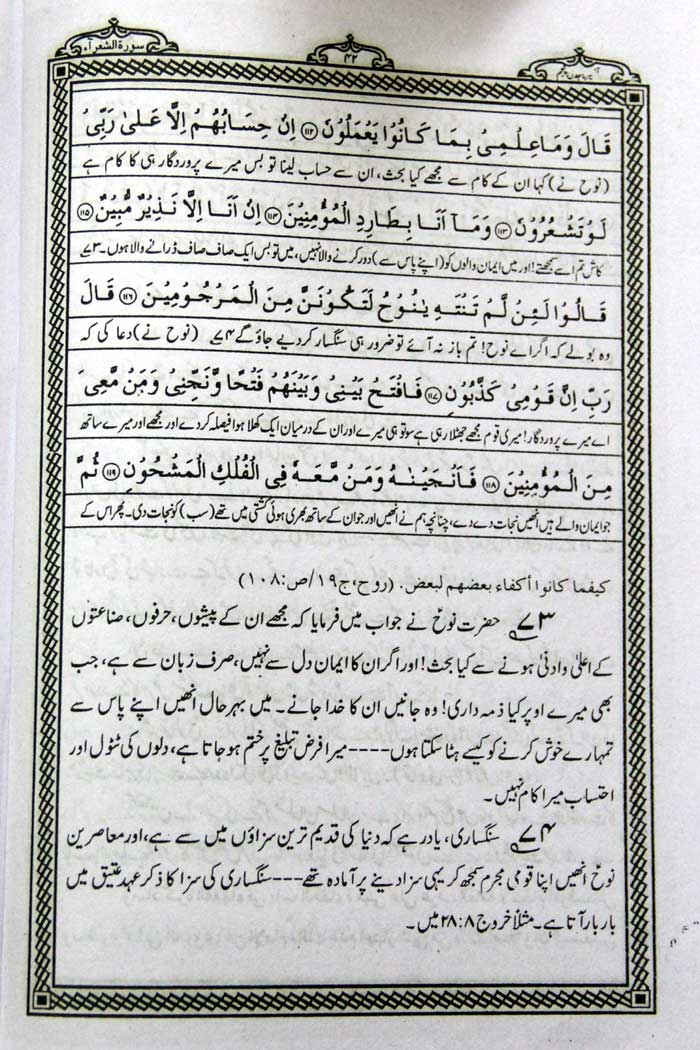 سورة الشعرآء
۴۲
قَالَ وَمَا عِلْمِیْ بِمَا كَانُوْا یَعْمَلُوْنَ ۝۱۱۲ اِنْ حِسَابُهُمْ اِلَّا عَلٰی رَبِّیْ
(نوح نے) کہا ان کے کام سے مجھے کیا بحث، ان سے حساب لینا تو بس میرے پروردگار ہی کا کام ہے
لَوْ تَشْعُرُوْنَ ۝۱۱۳ وَمَاۤ اَنَا بِطَارِدِ الْمُؤْمِنِیْنَ ۝۱۱۴ اِنْ اَنَا اِلَّا نَذِیْرٌ مُّبِیْنٌ ۝۱۱۵
کاش تم اسے سمجھتے! اور میں ایمان والوں کو (اپنے پاس سے) دور کرنے والا نہیں، میں تو بس ایک صاف صاف ڈرانے والا ہوں۔ ۷۳
قَالُوْا لَئِنْ لَّمْ تَنْتَهِ یٰنُوْحُ لَتَكُوْنَنَّ مِنَ الْمَرْجُوْمِیْنَ ۝۱۱۶ قَالَ
وہ بولے کہ اگر اے نوح! تم باز نہ آئے تو ضرور ہی سنگسار کر دیے جاؤ گے ۷۴ (نوح نے) دعا کی کہ
رَبِّ اِنَّ قَوْمِیْ كَذَّبُوْنِ ۝۱۱۷ فَافْتَحْ بَیْنِیْ وَبَیْنَهُمْ فَتْحًا وَّنَجِّنِیْ وَمَنْ مَّعِیَ
اے میرے پروردگار! میری قوم مجھے جھٹلا رہی ہے سو تو ہی میرے اور ان کے درمیان ایک کھلا ہوا فیصلہ کر دے اور مجھے اور میرے ساتھ
مِنَ الْمُؤْمِنِیْنَ ۝۱۱۸ فَاَنْجَیْنٰهُ وَمَنْ مَّعَهٗ فِی الْفُلْكِ الْمَشْحُوْنِ ۝۱۱۹ ثُمَّ
جو ایمان والے ہیں انھیں نجات دے دے، چنانچہ ہم نے انھیں اور جو ان کے ساتھ بھری ہوئی کشتی میں تھے (سب) کو نجات دی۔ پھر اس کے
كيفما كانوا أكفاء بعضهم لبعض. (روح، ج۱۹/ص:۱۰۸)
۷۳ حضرت نوحؑ نے جواب میں فرمایا کہ مجھے ان کے پیشوں، حرفوں، صناعتوں
کے اعلیٰ وادنیٰ ہونے سے کیا بحث! اور اگر ان کا ایمان دل سے نہیں، صرف زبان سے ہے، جب
بھی میرے اوپر کیا ذمہ داری! وہ جانیں ان کا خدا جانے۔ میں بہر حال انھیں اپنے پاس سے
تمہارے خوش کرنے کو کیسے ہٹا سکتا ہوں----میرا فرض تبلیغ پر ختم ہو جاتا ہے، دلوں کی ٹٹول اور
احتساب میرا کام نہیں۔
۷۴ سنگساری، یاد رہے کہ دنیا کی قدیم ترین سزاؤں میں سے ہے، اور معاصرین
نوحؑ انھیں اپنا قومی مجرم سمجھ کر یہی سزا دینے پر آمادہ تھے---سنگساری کی سزا کا ذکر عہد عتیق میں
بار بار آتا ہے۔ مثلاً خروج ۲۸:۸ میں۔